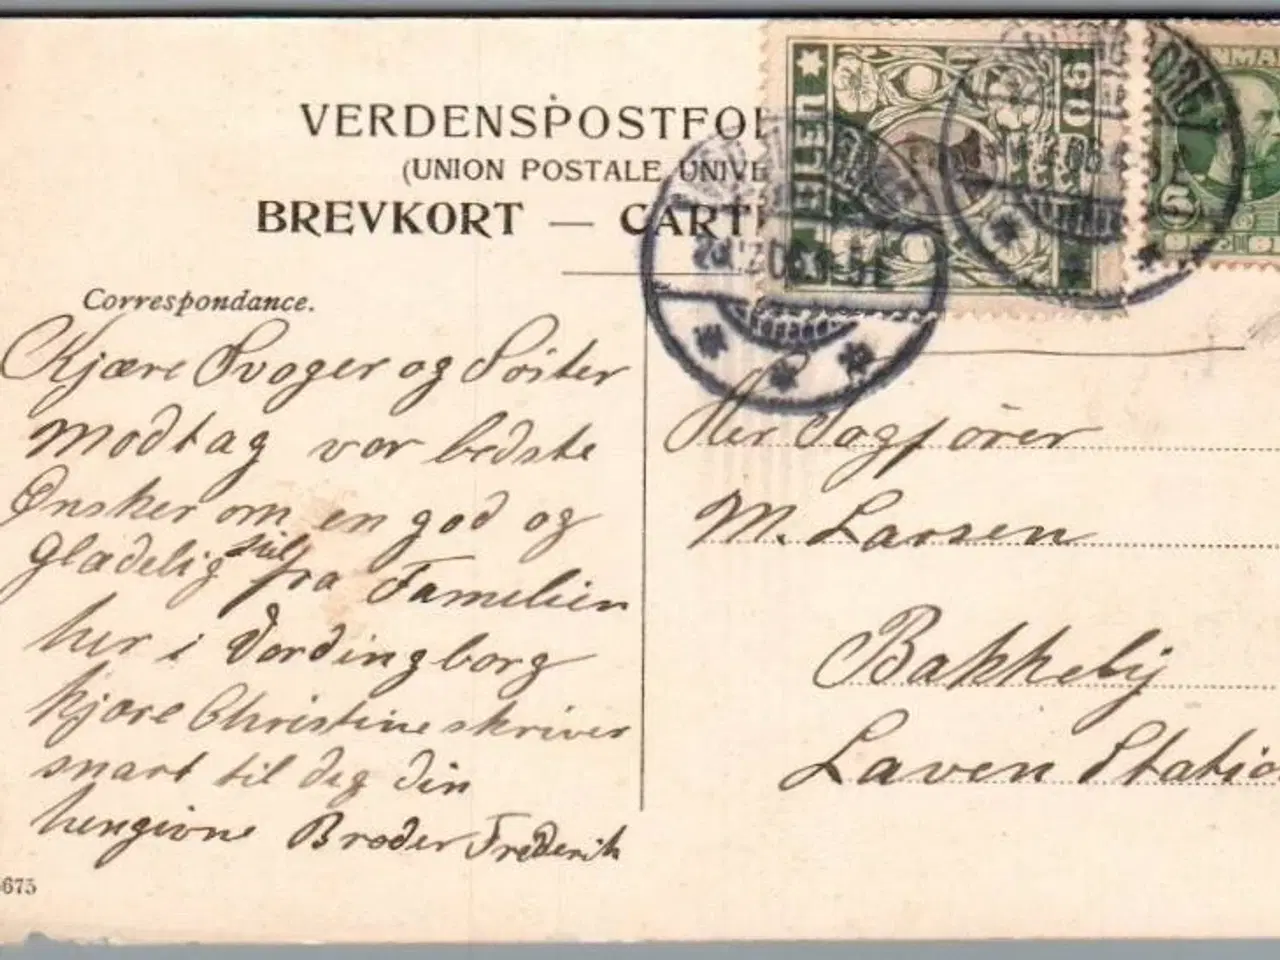 VERDENSPOSTFO
(UNION POSTALE UNIVE
BREVKORT — CARTE
JULEN
NMA
5
Correspondance.
Kjære Svoger og Söster
Modtag vor bedste
Ønsker om en god og
Glædelig Jul fra Familien
her i Vordingborg
kjære Christine skriver
snart til dig din
hengivne Broder Frederik
Her Sogfører
M. Larsen
Bakkebÿ
Laven Statio
675